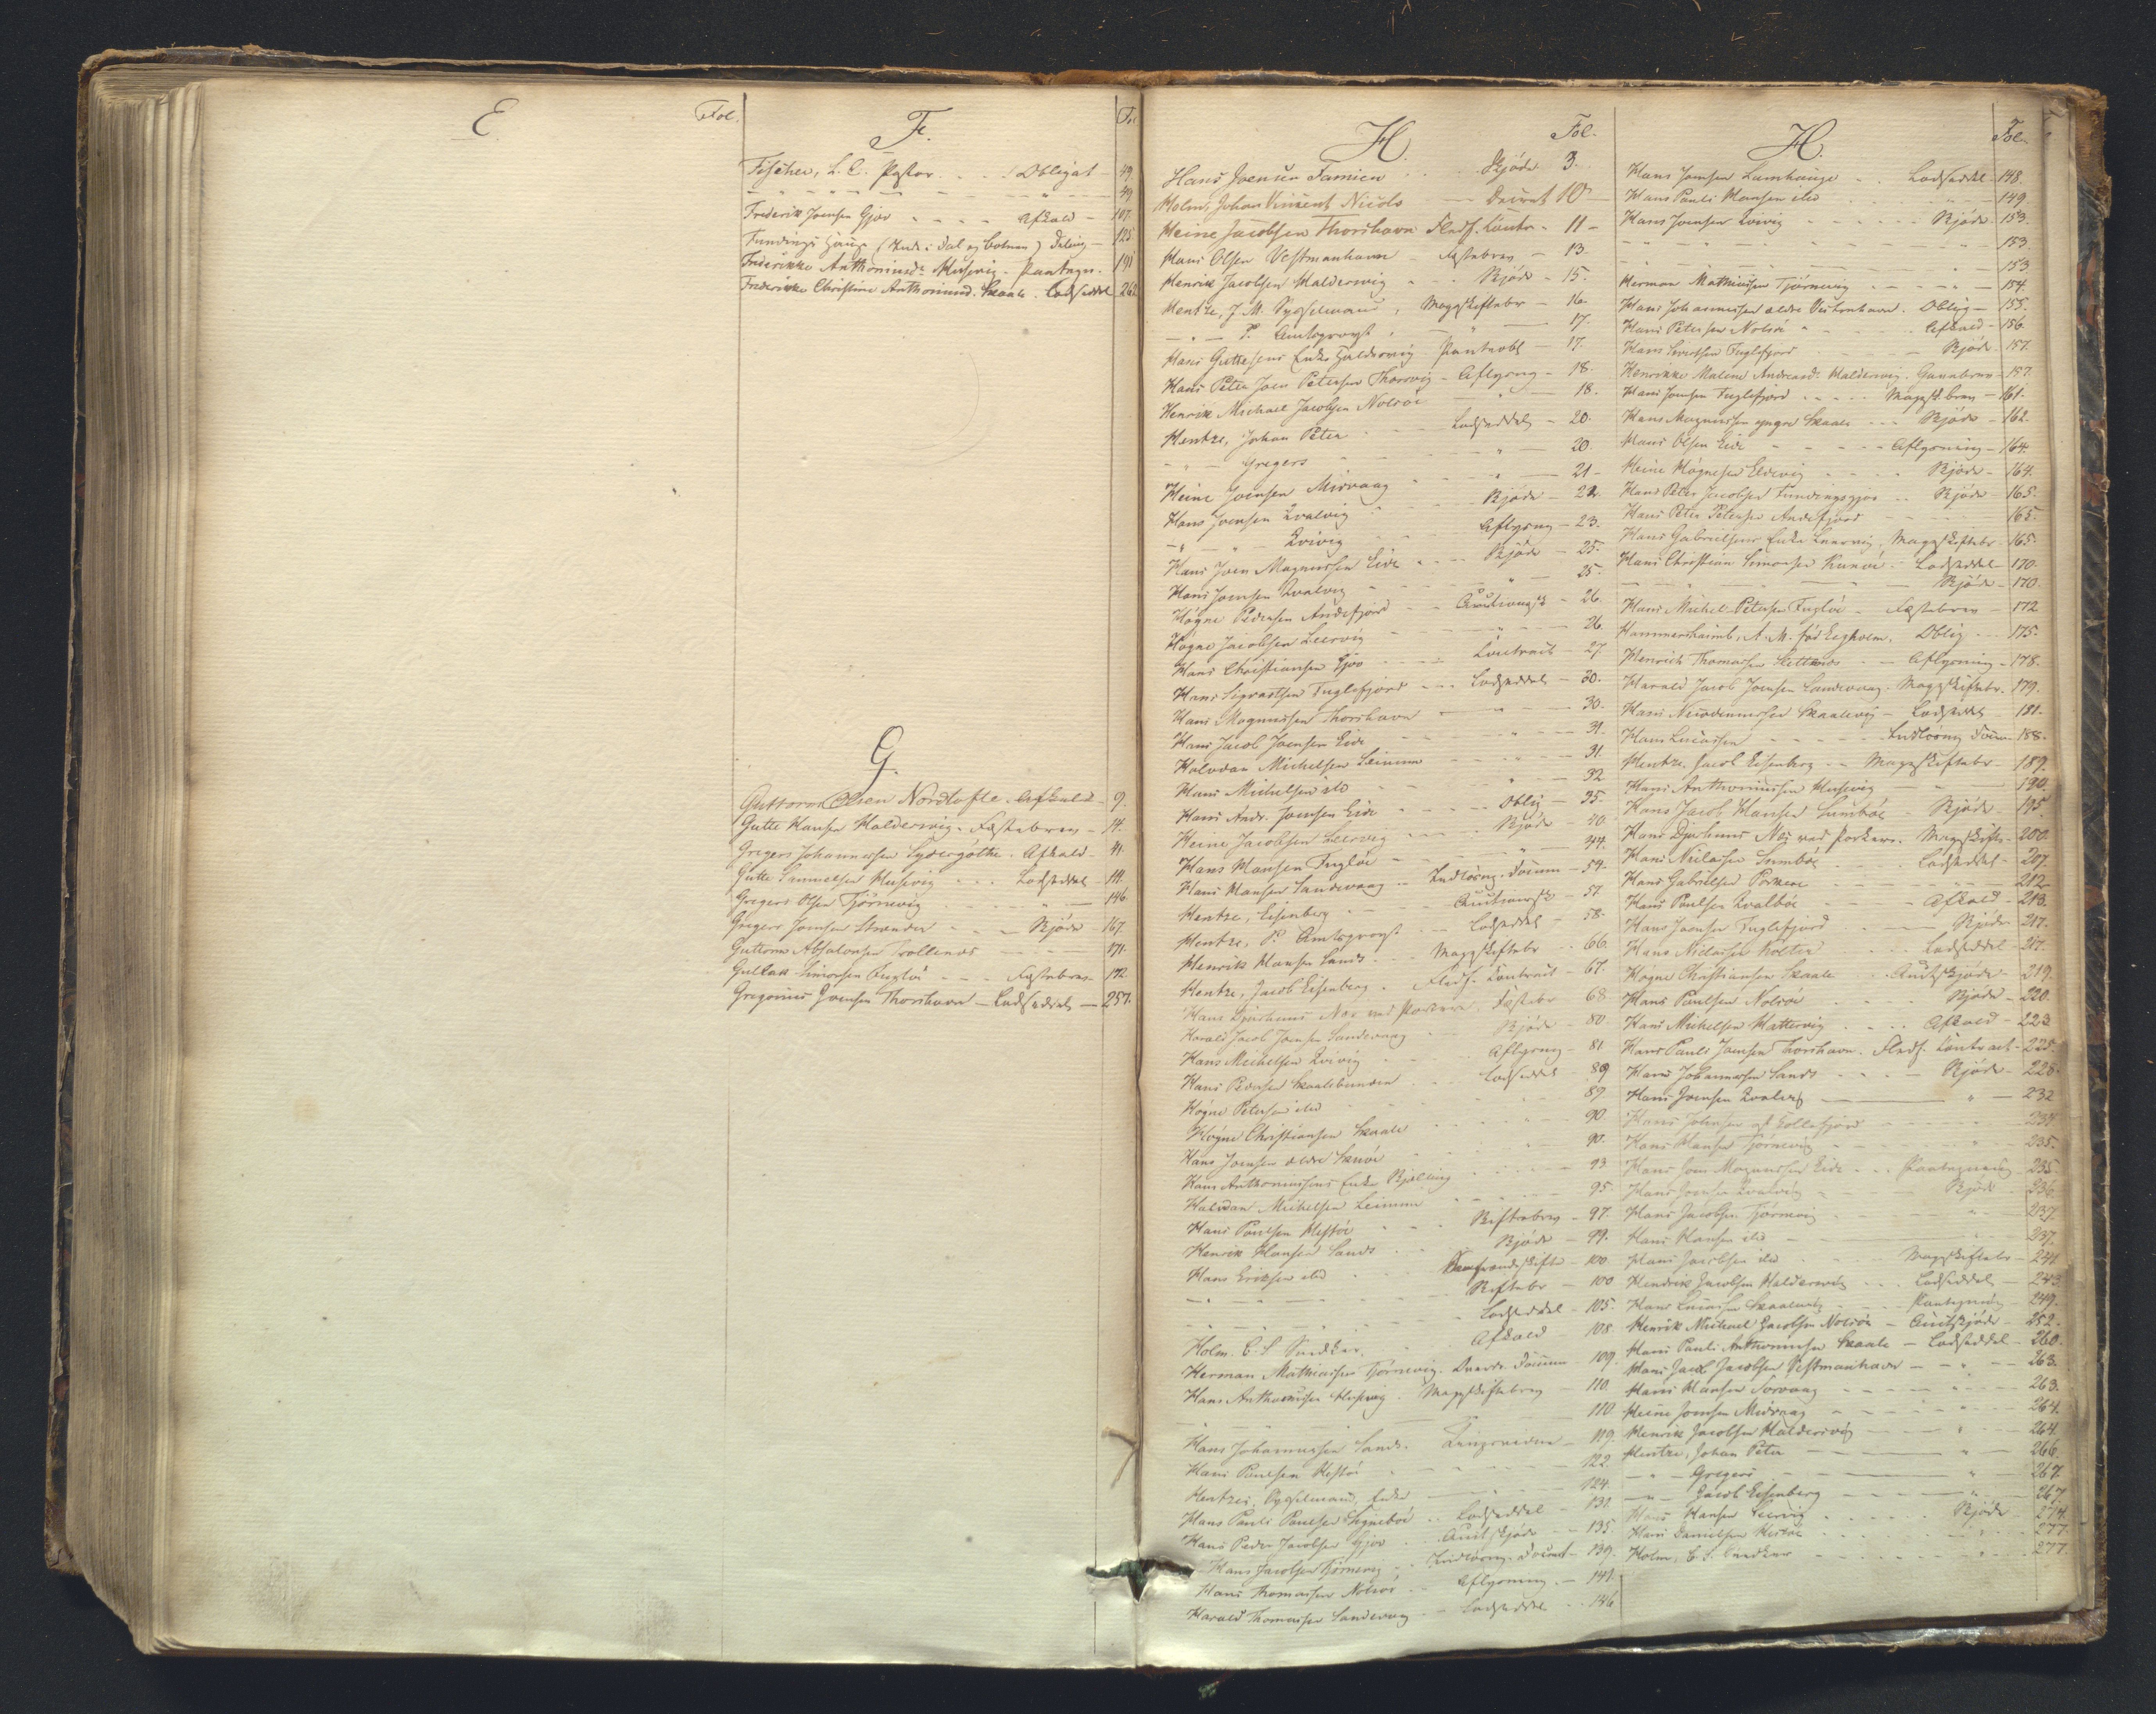 E
Fol.
F.
Fol
Fischer, L. C. Pastor. Obligat - 49.
- - - - - - " - 49
Frederik Joensen Gjov - - - - Afkald - 107.
Fundings Hauge (Inde i Dal og Botnen) Deling - 125
Frederikke Anthoniusd. Husevig - Pantegn. - 191
Frederikke Christine Anthoniusd. Skaale. Lodseddel 262
G.
Guttorm Olsen Nordtofte. Afkald - 9.
Gutte Hansen Haldersvig - Fæstebrev - 14.
Gregers Johannessen Sydregøthe. Afkald - 41.
Gutte Samuelsen Husevig - - - Lodseddel - 111.
Gregers Olsen Tjørnevig - - - " - 146.
Gregers Joensen Strender - - - Skjøde 167.
Guttorm Absalonsen Trollenæs - - - 171.
Gullak Simonsen Fuglø - - - Fæstebrev - 172.
Gregorius Joensen Thorshavn - Lodseddel - 257.
H.
Fol.
Hans Joensen Famien . . . Skjøde 3.
Holm, Johan Vincent Nicols - - Decret 10 -
Heine Jacobsen Thorshavn Fledf. Contr. - 11 -
Hans Olsen Vestmanhavn - Fæstebrev - 13.
Henrik Jacobsen Haldersvig - - Skjøde - 15.
Hentze, J. M. Sysselmand, Mageskiftebr - 16.
- " - P. Amtsprovst - " - 17.
Hans Guttesens Enke Haldersvig Panteobl - 17.
Hans Peter Joen Petersen Thorsvig - Aflysning - 18.
Henrik Michael Jacobsen Nolsøe - " - 18.
Hentze, Johan Peter - - Lodseddel - 20.
- " - Gregers - - " - 20.
Heine Joensen Midvaag - - " - 21 -
Hans Joensen Qvalvig - - Skjøde - 22.
- " - " - Qvivig - - Aflysning - 23.
Hans Joen Magnussen Eide - - - Skjøde - 25.
Hans Joensen Qvalvig - - " - 25.
Høgne Pedersen Andefjord - - Auctionssk - 26.
Høgne Jacobsen Leervig - - " - 26.
Hans Christiansen Gjov - - - Contract - 27.
Hans Sigvartsen Fuglefjord - - - Lodseddel - 30.
Hans Magnussen Thorshavn - " - 30.
Hans Jacob Joensen Eide - - " - 31.
Halvdan Michelsen Leinum - - " - 31.
Hans Michelsen ibd - - " - 32
Hans Andr. Joensen Eide - - - Oblig - 35.
Heine Jacobsen Leervig - - - Skjøde - 40.
Hans Hansen Fugløe - - " - 44.
Hans Hansen Sandevaag - Indløsng. Docum - 54.
Hentze, Eisenberg - - - Auctionssk - 57.
Hentze, P. Amtsprovst - - Lodseddel - 58.
Henrik Hansen Sands - - - Mageskiftebr - 66.
Hentze, Jacob Eisenberg - Fledf. Contract - 67.
Hans Djurhuus Næs ved Porkere. Fæstebr - 68
Harald Jacob Joensen Sandevaag - - Skjøde - 80
Hans Michelsen Qvivig - - Aflysning - 81
Hans Pedersen Skaalebunden - - Lodseddel - 89
Høgne Petersen ibd - - - - 89.
Høgne Christiansen Skaale - - " - 90
Hans Joensen ældre - - - 90.
Hans Anthoniussens Enke - - - 93
Halvdan Michelsen Leinum - - - 95.
Hans Poulsen Hestøe - - - Skiftebrev - 97.
Henrik Hansen Sands - - Skjøde - 99.
Hans Eriksen ibd - - Samfrændeskifte - 100
- " - - - - Skiftebr - 100
- - - - - Lodseddel - 105.
Holm. C. S Snedker. - - Afkald - 108.
Herman Mathiassen Tjørnevig. Docum - 109.
Hans Anthoniussen Husevig. Mageskiftebrev - 110.
- - - - - - 110
Hans Johannessen Sands. - 119.
Hans Poulsen Hestøe - - - 122
Hentzes, Sysselmand, Enke - - 124
Hans Pauli Poulsen Signebøe . . Lodseddel - 131
Hans Peder Jacobsen Gjov . Auct. Skjøde - 135.
Hans Jacobsen Tjørnevig - Indløsng. Docmt - 139.
Hans Thomassen Nolsøe - - Aflysning - 141.
Harald Thomassen Sandevaag - - Lodseddel - 146
H.
Fol.
Hans Joensen Lamhauge . . Lodseddel - 148
Hans Pauli Hansen ibd - - - 149.
Hans Joensen Qvivig - - Skjøde - 153.
- - - - - " - 153
- - - - - " - 153
Herman Mathiassen Tjørnevig - - " - 154.
Hans Johannessen ældre Vestmhavn. Oblig - 155.
Hans Petersen Nolsøe - - - Afkald - 156.
Hans Sivertsen Fuglefjord - - Skjøde - 157.
Henrikke Malene Andreasd. Haldersvig. Gavebrev - 157.
Hans Joensen Fuglefjord - - - - Magesk.brev - 161.
Hans Magnussen yngre Skaale - - - Skjøde - 162.
Hans Olsen Eide - - - - Aflysning - 164.
Heine Høgnesen Eldevig - - - Skjøde - 164.
Hans Peter Jacobsen Fundingsgjov - - Skjøde - 165.
Hans Peter Petersen Andefjord - - - 165.
Hans Gabrielsens Enke Leervig, Mageskiftebr - 165.
Hans Christian Simonsen Kunøe - Lodseddel - 170.
- - - - - Skjøde - 170.
Hans Michel Petersen Fugløe - Fæstebrev - 172
Hammershaimb, A. M. fød Egholm. Oblig - - 175.
Henrich Thomassen Slettnæs - - Aflysning - 178.
Harald Jacob Joensen Sandevaag - Mageskiftebr. 179.
Hans Skaalevig - Lodseddel - 181.
Hans Lucassen - - - Indløsng Docum - 188.
Hentze, Jacob Eisenberg - - Mageskiftebr - 189.
Hans Anthoniussen Husevig - " - 190.
Hans Jacob Hansen Sumbøe - Skjøde - 195.
Hans Djurhuus Næs ved Porkere. Mageskiftr - 200.
Hans Nielsen Sumbøe - - Lodseddel - 207.
Hans Gabrielsen Porkere - - - 212
Hans Poulsen Qvalbøe - - - Afkald - 213.
Hans Joensen Fuglefjord - - Skjøde - 217.
Hans Nielsen Kolter - - Lodseddel - 217.
Høgne Christiansen Skaale . Auctskjøde - 219.
Hans Poulsen Nolsøe - - Skjøde - 220.
Hans Michelsen Hattervig . . . . Afkald - 223
Hans Pauli Joensen Thorshavn. Fledf. Contract - 225.
Hans Johannessen Sands - - - Skjøde - 228.
Hans Joensen Qvalvig - " - 232
Hans Johnsen af Kollefjord - - - 234
Hans Hansen Tjørnevig - - " - 235.
Hans Joen Magnussen Eide . . . Pantegning - 235
Hans Joensen Qvalvig - - - Skjøde - 236.
Hans Jacobsen Tjørnevig - - " - 237
Hans Hansen ibd - - - 237.
Hans Jacobsen ibd - - Mageskiftebr - 241
Hendrik Jacobsen Haldersvig . . . Lodseddel - 243
Hans Lucassen Skaalevig - - - Pantegning - 249.
Henrik Michael Jacobsen Nolsøe - Auctskjøde - 252.
Hans Pauli Anthoniussen Skaale - Lodseddel - 260.
Hans Jacob Jacobsen Vestmanhavn - " - 263.
Hans Hansen Sørvaag - - - 263.
Heine Joensen Midvaag - - - 264.
Henrik Jacobsen Haldersvig - " - 264.
Hentze, Johan Peter - " - 266.
- " - Gregers - " - 267.
- " - Jacob Eisenberg - " - 267
Hans Hansen Leervig - - - Skjøde - 274.
Hans Danielsen - - - 277.
Holm, C. S. Snedker - - - 277